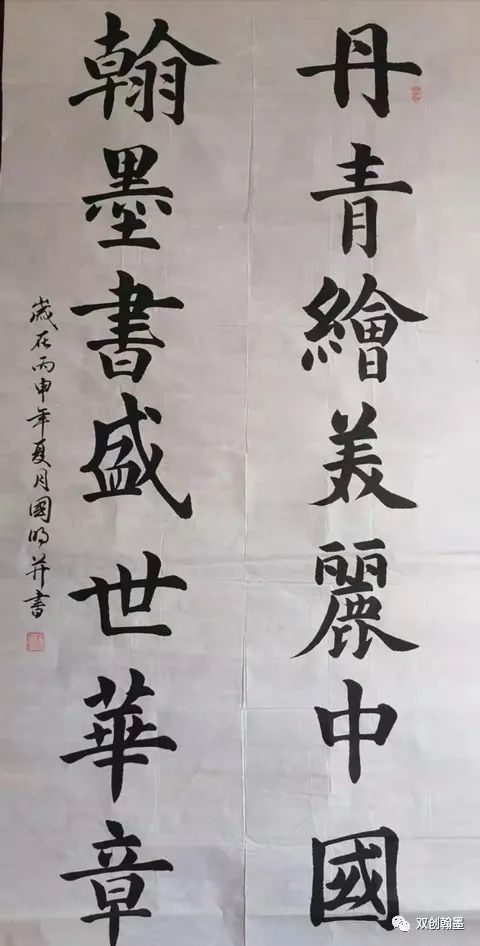 丹青繪美麗中國
翰墨書盛世華章
歲在丙申年夏月國明并書
双创翰墨